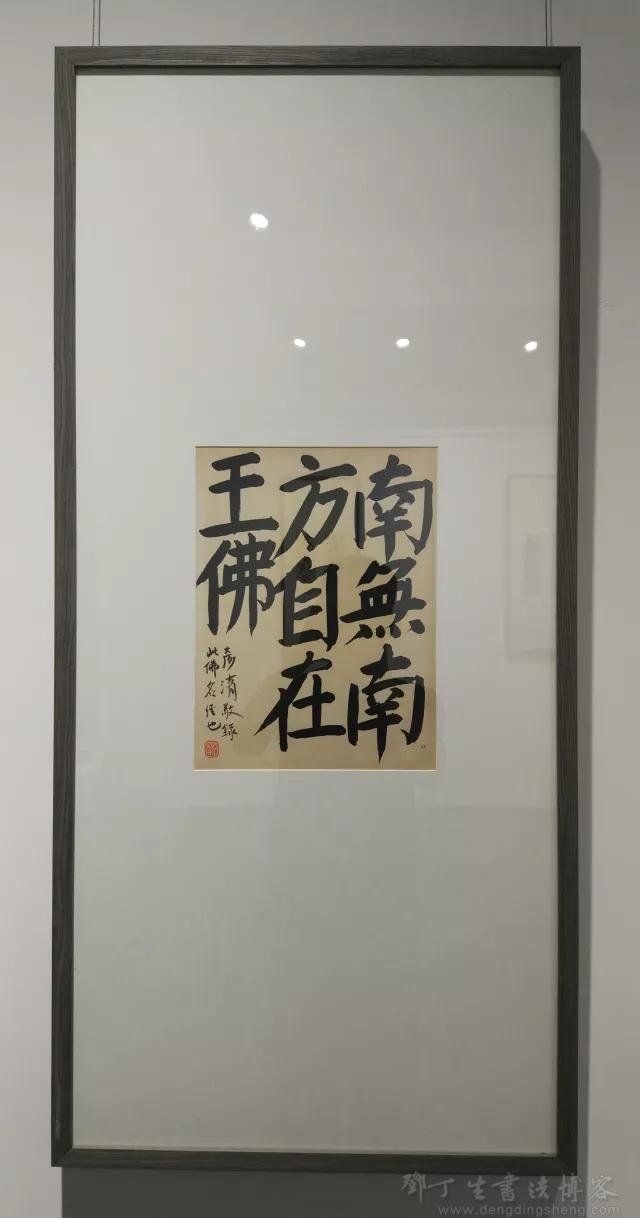 南無南
方自在
王佛
彦湑敬録
此佛名經也
鄧丁生書法博客
www.dengdingsheng.com